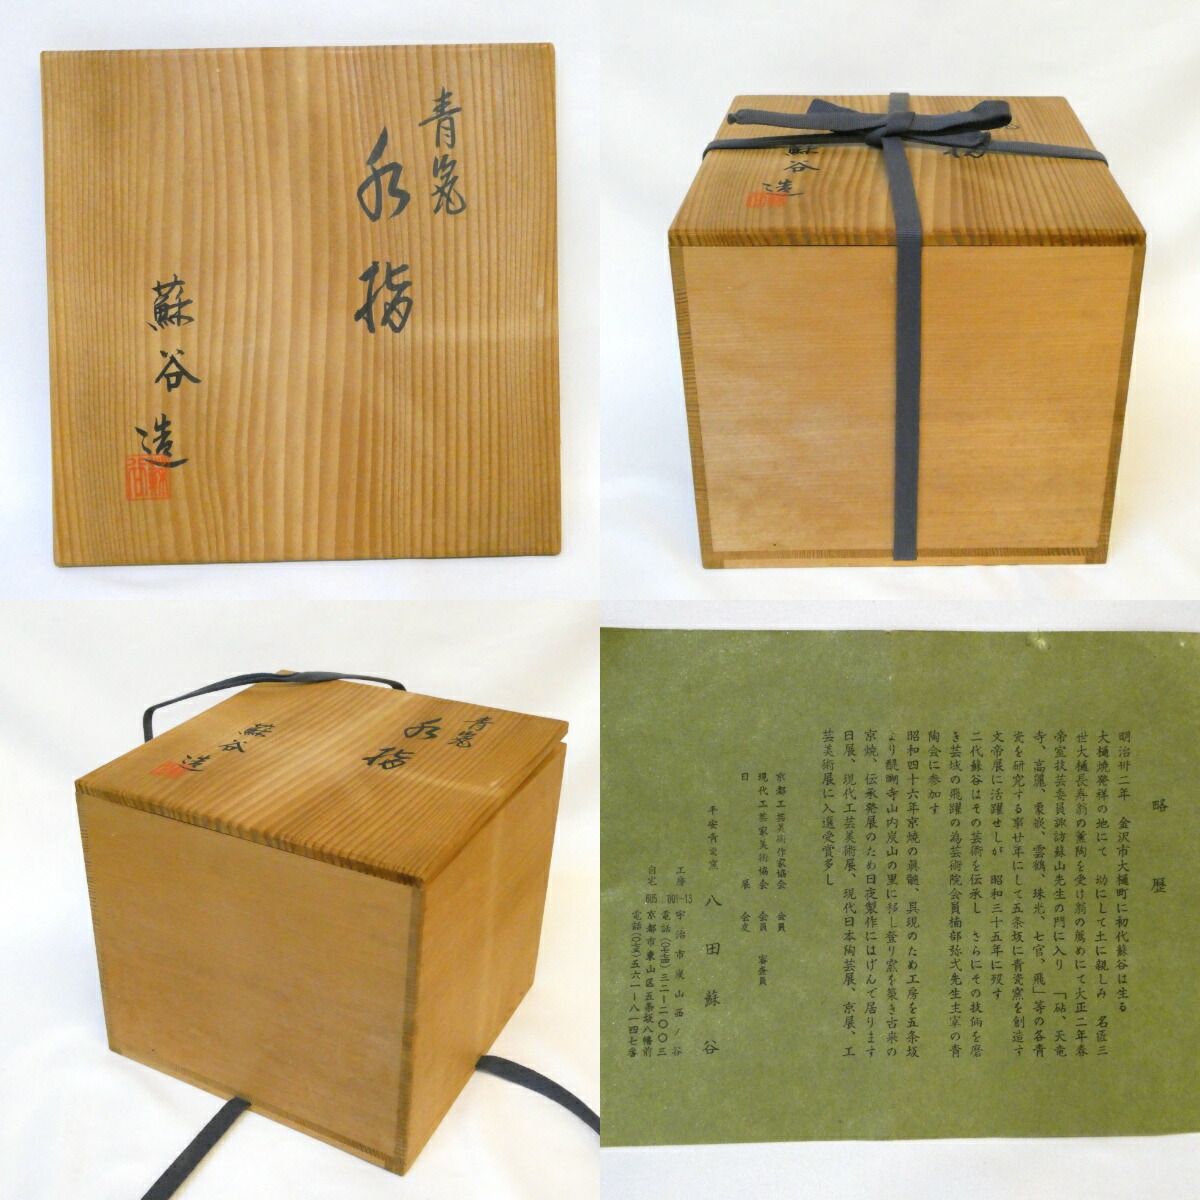 青瓷
水指
蘇谷
造
蘇谷
造
指
青瓷
水指
蘇谷
造
略歴
明治卅二年 金沢市大樋町に初代蘇谷は生る
大樋焼発祥の地にて 幼にして土に親しみ 名匠三
世大樋長寿翁の薫陶を受け翁の薦めにて大正二年春
帝室技芸委員諏訪蘇山先生の門に入り 「砧、天竜
寺、高麗、象嵌、雲鶴、珠光、七官、飛」等の各青
瓷を研究する事廿年にして五条坂に青瓷窯を創造す
文帝展に活躍せしが 昭和三十五年に歿す
二代蘇谷はその芸術を伝承し さらにその技術を磨
き芸域の飛躍の為芸術院会員楠部弥弌先生主宰の青
陶会に参加す
昭和四十六年京焼の真髄、具現のため工房を五条坂
より醍醐寺山内炭山の里に移し登り窯を築き古来の
京焼、伝承発展のため日夜製作にはげんで居ります
日展、現代工芸美術展、現代日本陶芸展、京展、工
芸美術展に入選受賞多し
京都工芸美術作家協会 会員
現代工芸家美術協会 会員 審査員
日展 会友
平安青瓷窯 八田蘇谷
工房 601-13 宇治市炭山西ノ谷
電話(〇七七四)三二-二〇〇三
自宅 605 京都市東山区五条坂八幡前
電話(〇七五)五六一-八一四七番